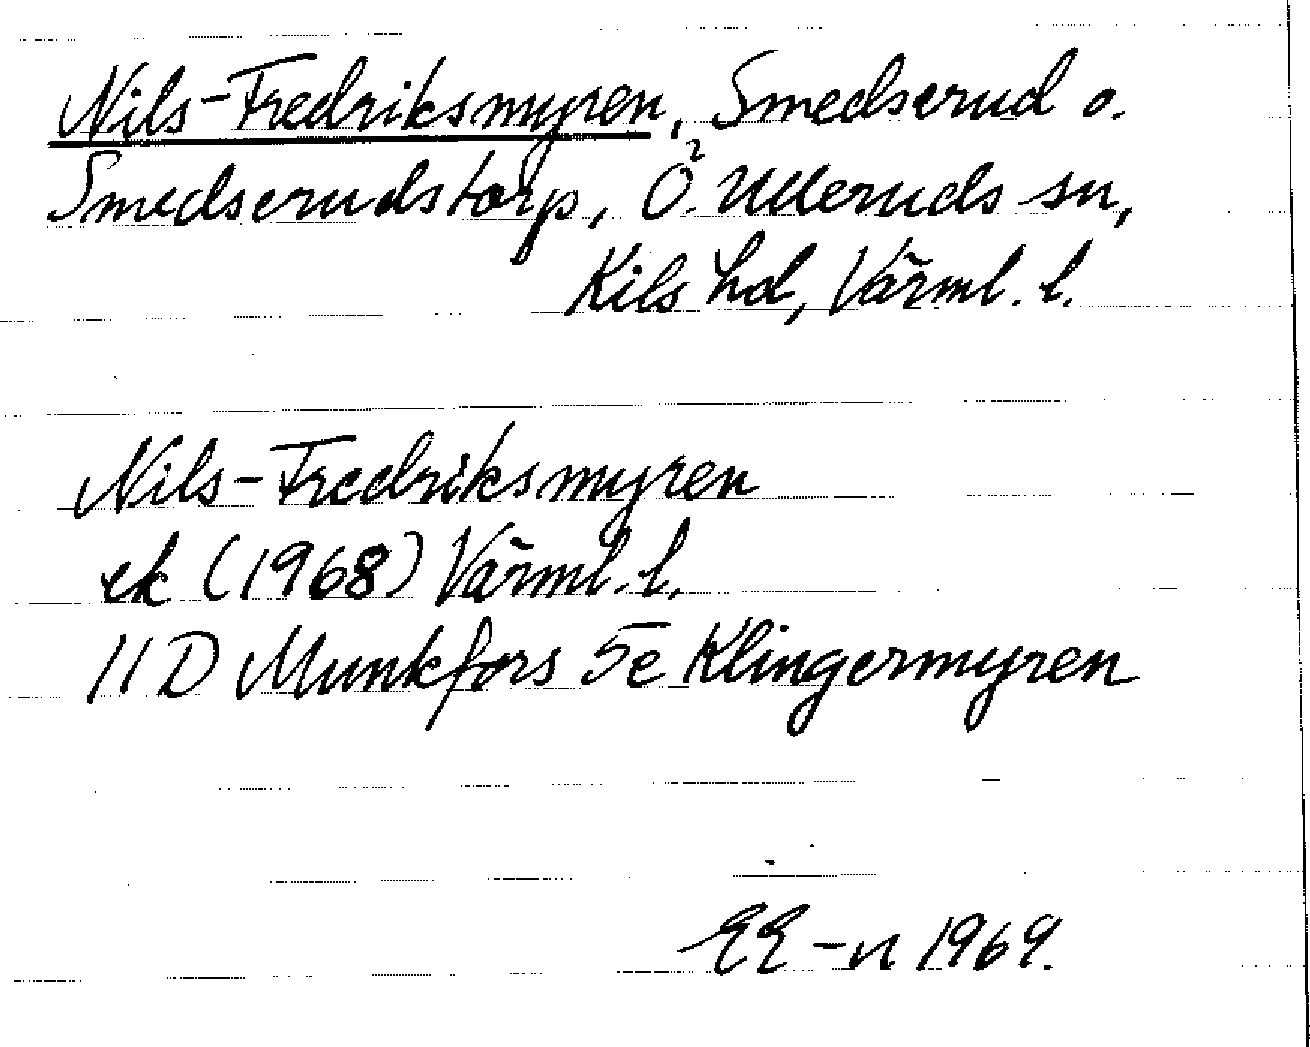 Nils-Fredriksmyren, Smedserud o.
Smedserudstorp, Ö. Ulleruds sn,
Kils hd, Värml. l.
Nils-Fredriksmyren
ek (1968) Värml. l.
11 D Munkfors 5e Klingermyren
EE-n 1969.